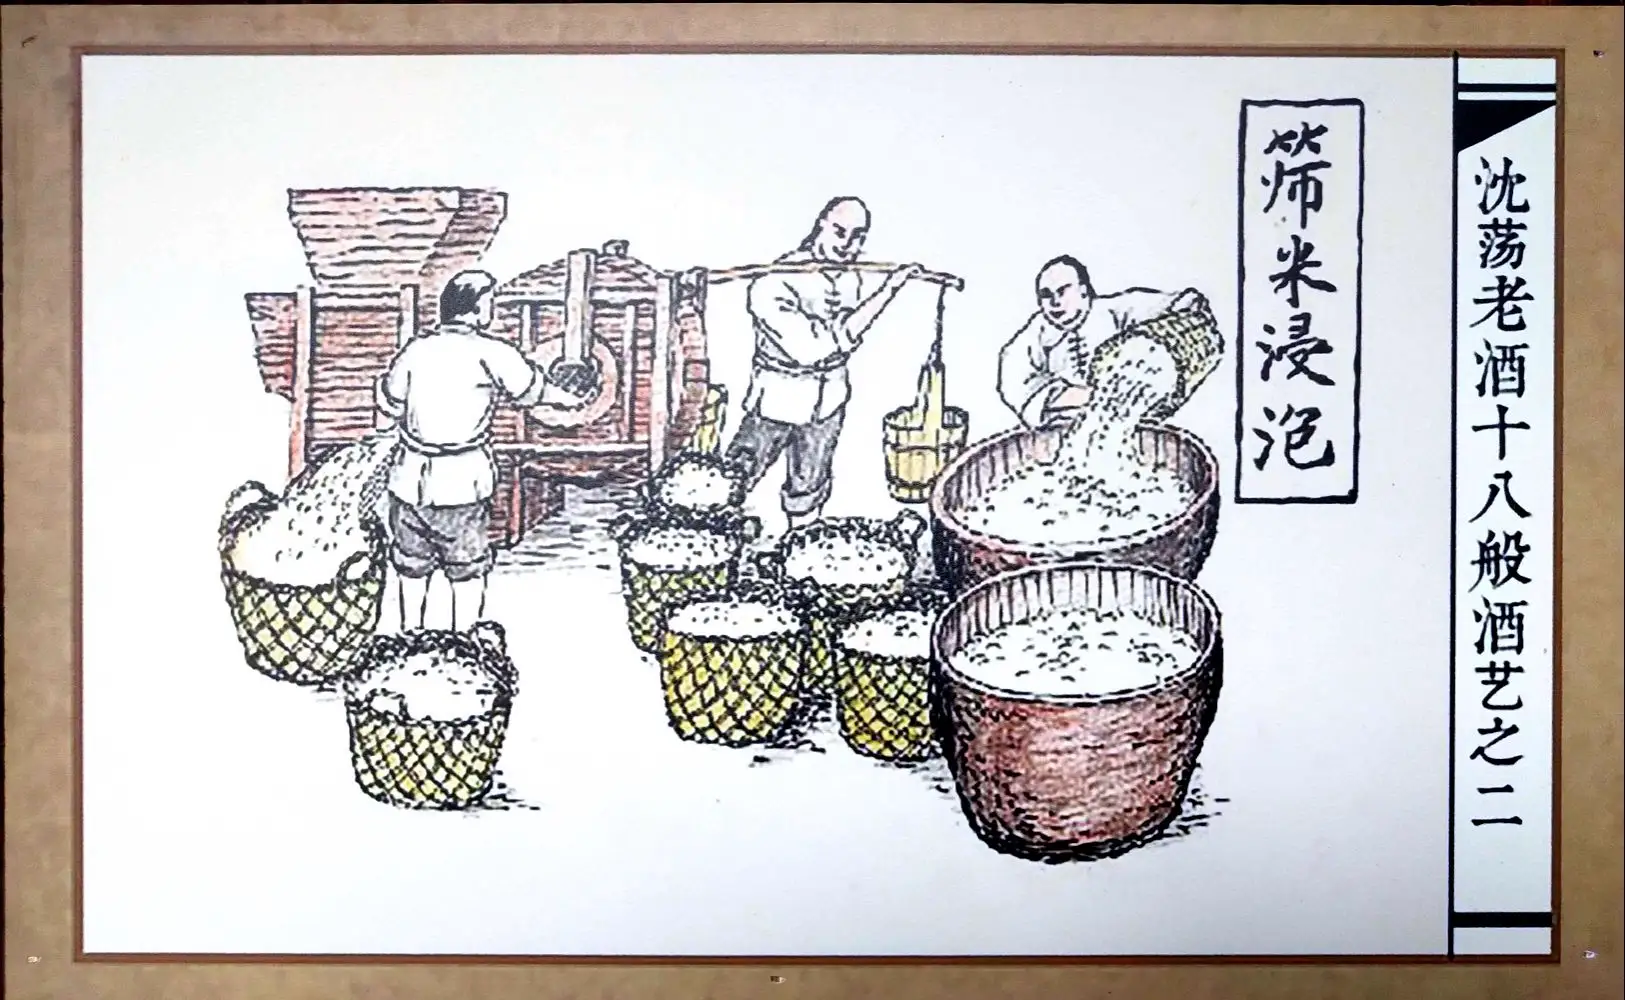 沈荡老酒十八般酒艺之二
筛米浸泡